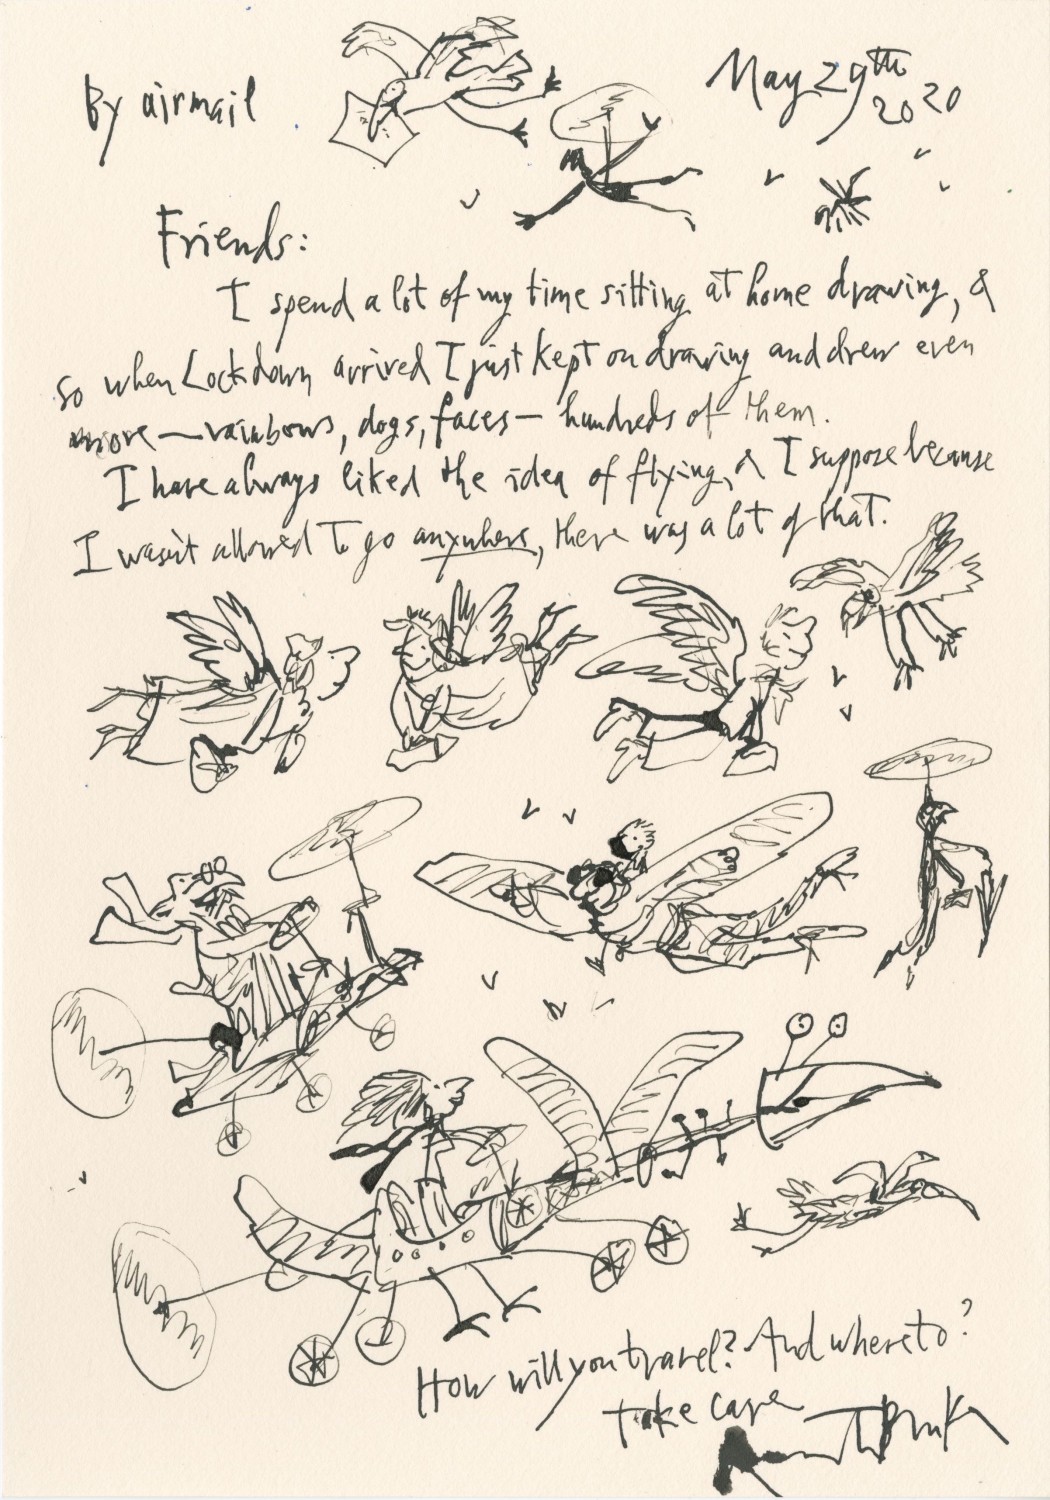 By airmail
May 29th
2020
Friends:
I spend a lot of my time sitting at home drawing, &
so when Lockdown arrived I just kept on drawing and drew even
more — rainbows, dogs, faces — hundreds of them.
I have always liked the idea of flying, & I suppose because
I wasn't allowed to go anywhere, there was a lot of that.
How will you travel? And where to?
take care